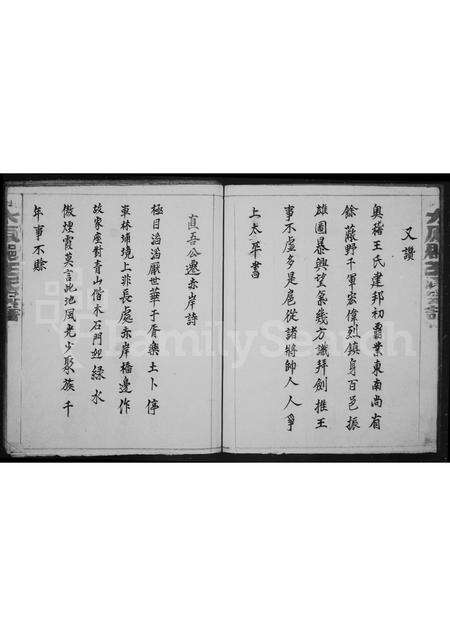 又讚
奧稽王氏建邦初曹業東南尚有
餘蔭野千軍宏偉烈鎮身百邑振
雄圖暴興望氣幾方識拜劍推王
事不虛多是扈從諸將帥人人爭
上太平書
直吾公遷赤岸詩
極目滔滔厭世華于胥樂土卜停
車林埔境上非長處赤岸橋邊作
故家座對青山偕木石門迎綠水
傲煙霞莫言此池風光少聚族千
年事不賒
FamilySearch